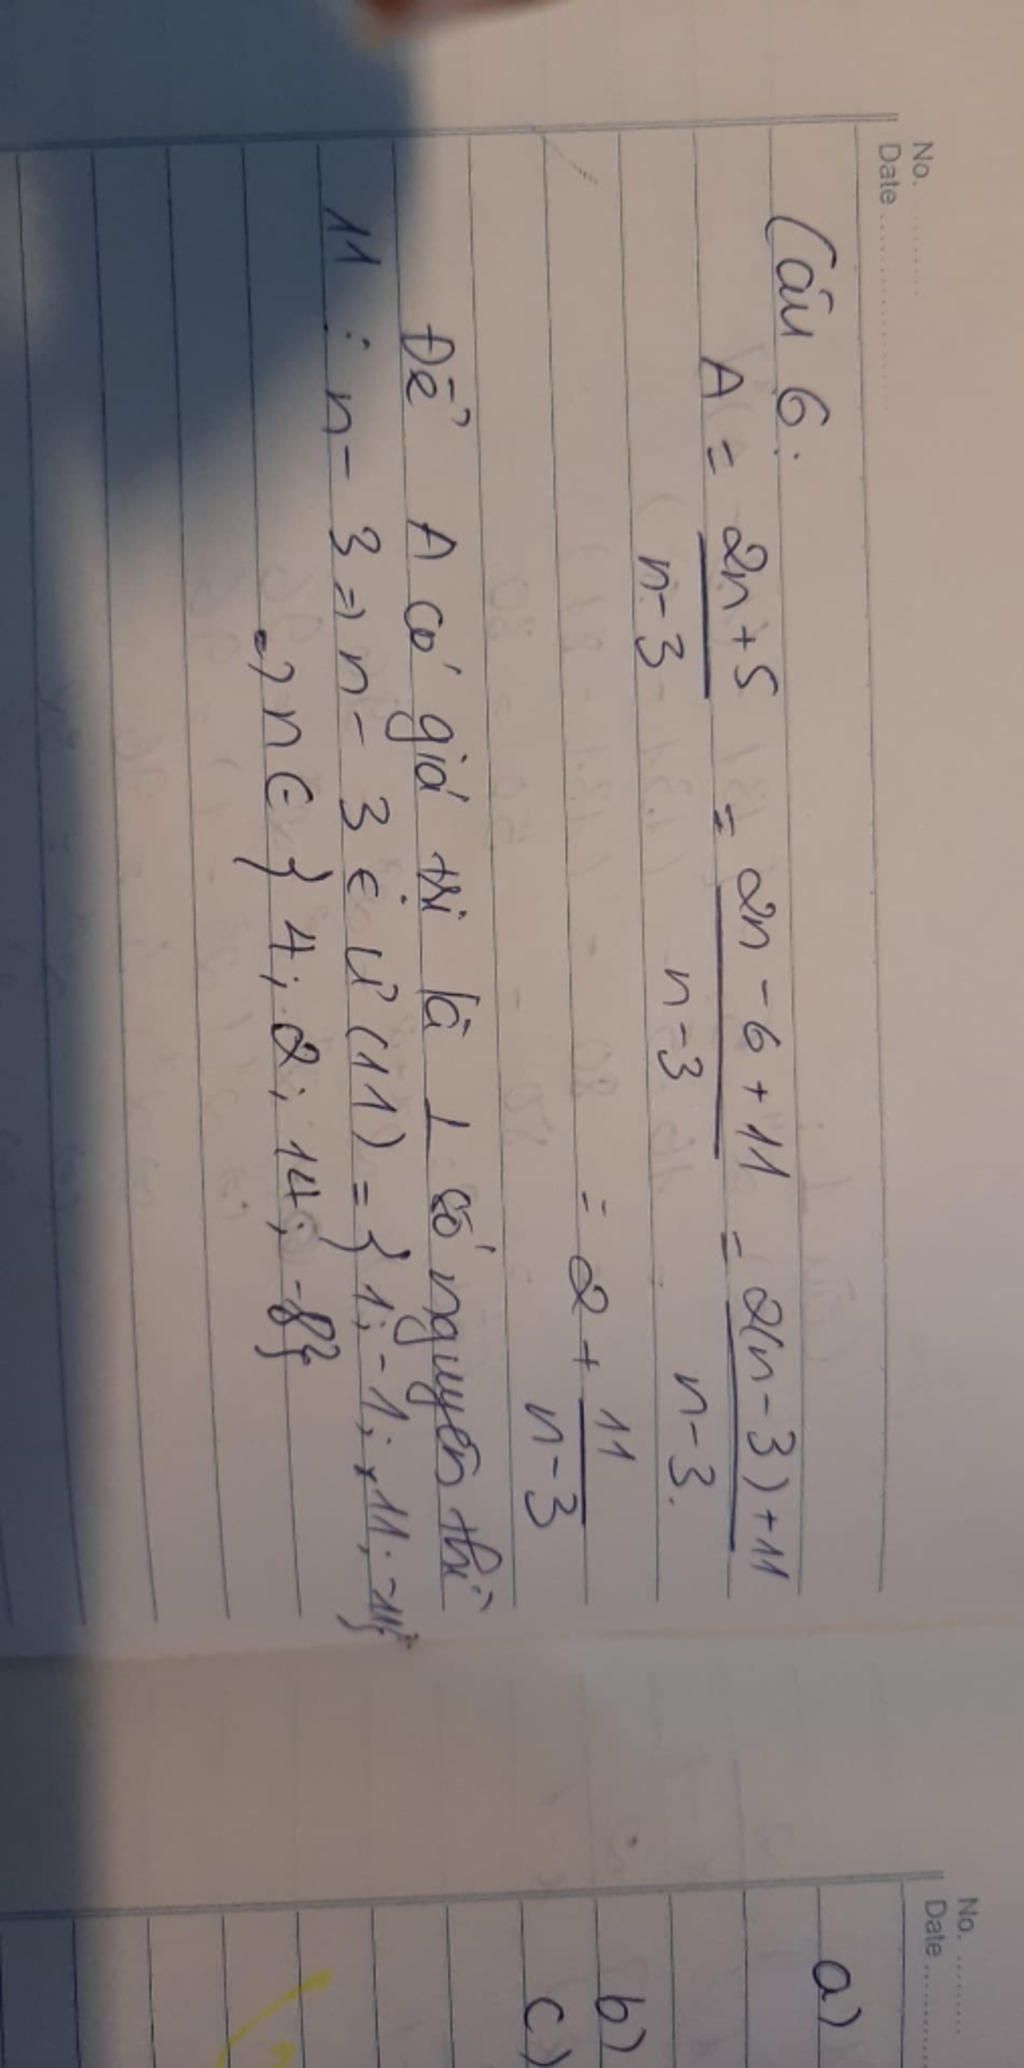 No. ..........
Date ....................
Câu 6.
A = 2n+5 / n-3 = 2n-6+11 / n-3 = 2(n-3)+11 / n-3.
= 2 + 11 / n-3
Để A có giá trị là 1 số nguyên thì
11 ⋮ n-3 => n-3 ∈ Ư(11) = {1; -1; 11; -11}
=> n ∈ {4; 2; 14; -8}
No. ..........
Date ..........
a)
b)
c)